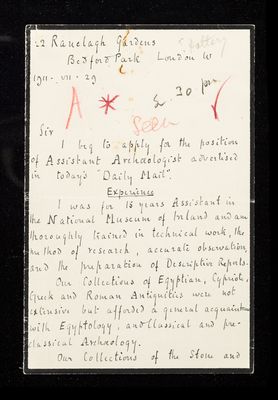 22 Ranelagh Gardens
Bedford Park London W
1911 . VII . 29
A
Seen
Sir
I beg to apply for the position
of Assistant Archaeologist advertised
in today's "Daily Mail".
Experience
I was for 15 years Assistant in
the National Museum of Ireland and am
thoroughly trained in technical work, the
method of research, accurate observation,
and the preparation of Descriptive Reports.
Our Collections of Egyptian, Cypriote,
Greek and Roman Antiquities were not
extensive but afforded a general acquaintance
with Egyptology, and Classical and pre-
classical Archaeology.
Our Collections of the Stone and